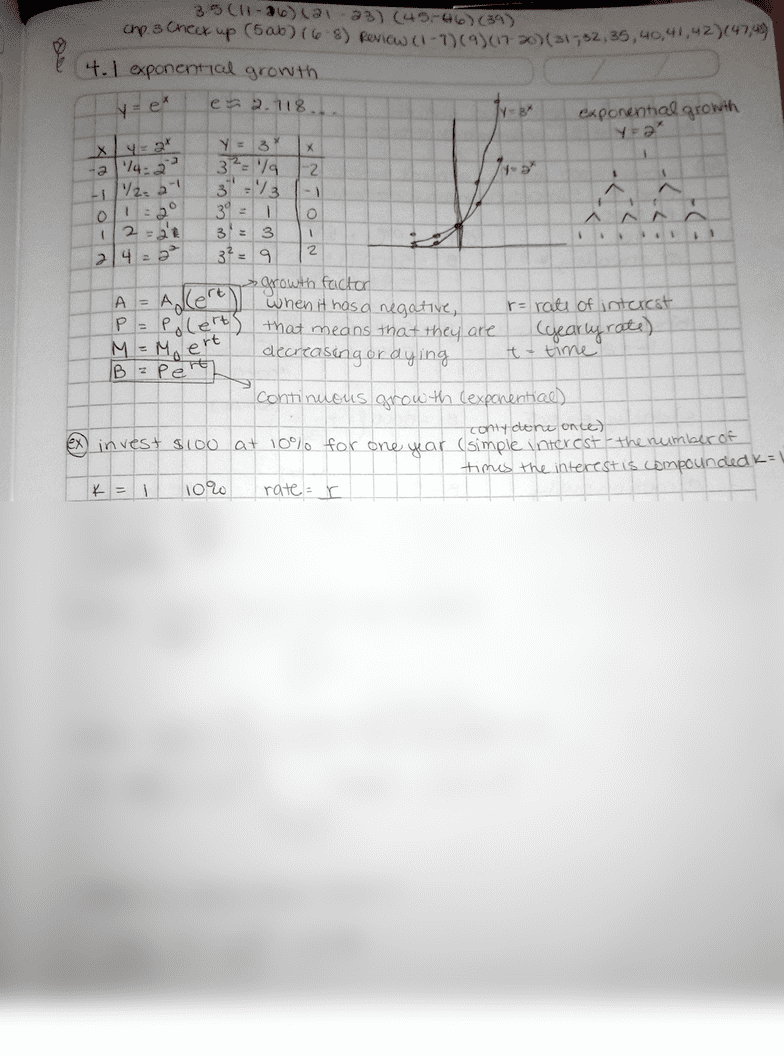 3.5 (11-26) (21-23) (45-46) (39)
Chp. 3 Check up (5ab) (6-8) Review (1-7) (9) (17-20) (31-32, 35, 40, 41, 42) (47,48)
4.1 exponential growth
y = eˣ e ≈ 2.718...
exponential growth
y = 2ˣ
y = 3ˣ
y = 2ˣ
x | y = 2ˣ y = 3ˣ | x
-2 | 1/4 = 2⁻² 3⁻² = 1/9 | -2
-1 | 1/2 = 2⁻¹ 3⁻¹ = 1/3 | -1
0 | 1 = 2⁰ 3⁰ = 1 | 0
1 | 2 = 2¹ 3¹ = 3 | 1
2 | 4 = 2² 3² = 9 | 2
growth factor
A = A₀(eʳᵗ) when it has a negative, r = rate of interest
P = P₀(eʳᵗ) that means that they are (yearly rate)
M = M₀eʳᵗ decreasing or dying t = time
B = Peʳᵗ
continuous growth (exponential)
(only done once)
ex invest $100 at 10% for one year (simple interest - the number of
times the interest is compounded k = 1
k = 1 10% rate = r